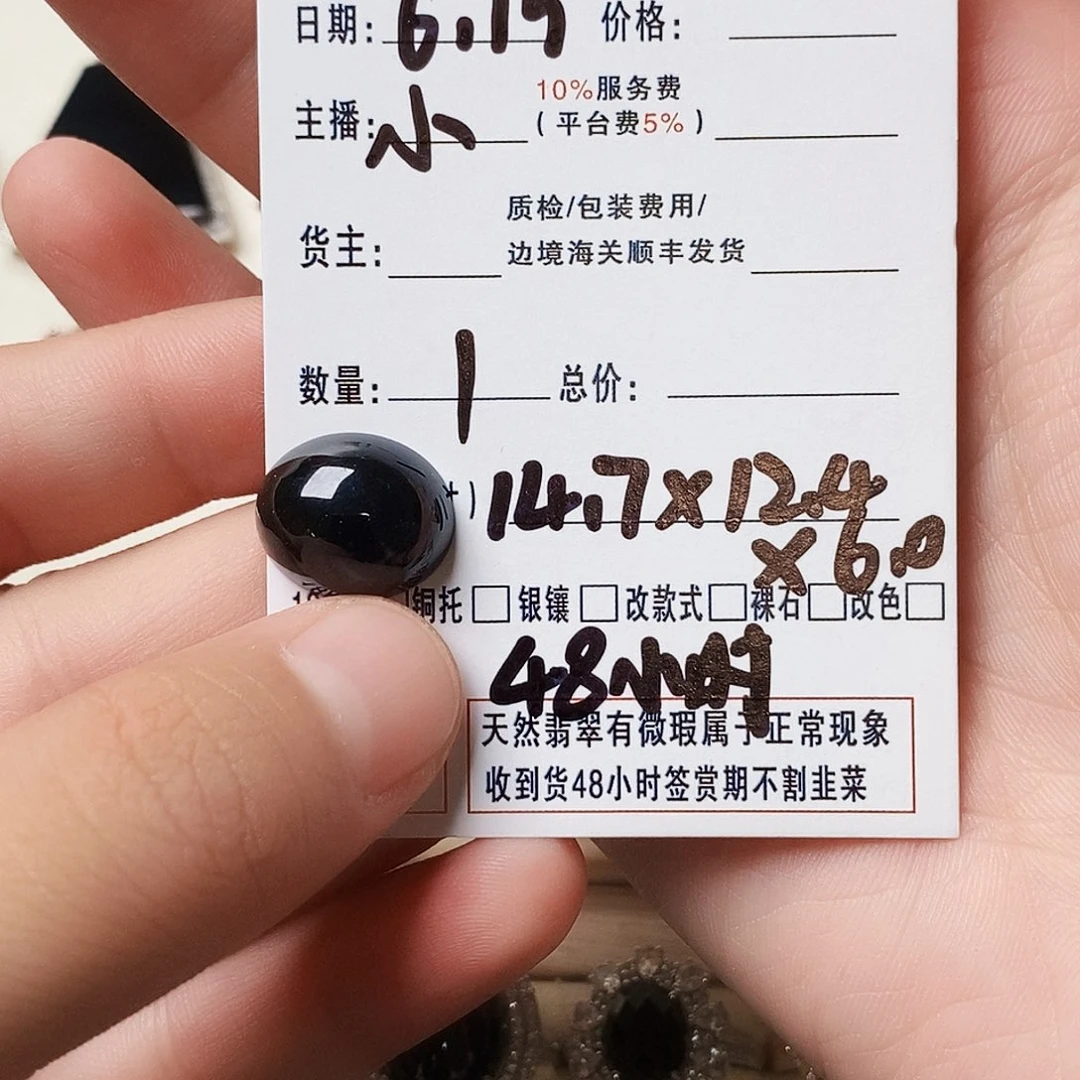 日期: 6.19 价格:
主播: 小 10%服务费
(平台费5%)
质检/包装费用/
货主: 边境海关顺丰发货
数量: 1 总价:
寸) 14.7×12.4
×6.0
铜托 银镶 改款式 裸石 改色
48小时
天然翡翠有微瑕属于正常现象
收到货48小时签赏期不割韭菜